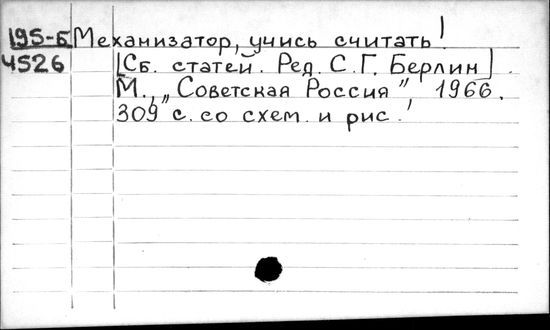 195-Б Механизатор, учись считать!
4526 [Сб. статей. Ред. С. Г. Берлин].
М., „Советская Россия” 1966.
309 с. со схем. и рис.